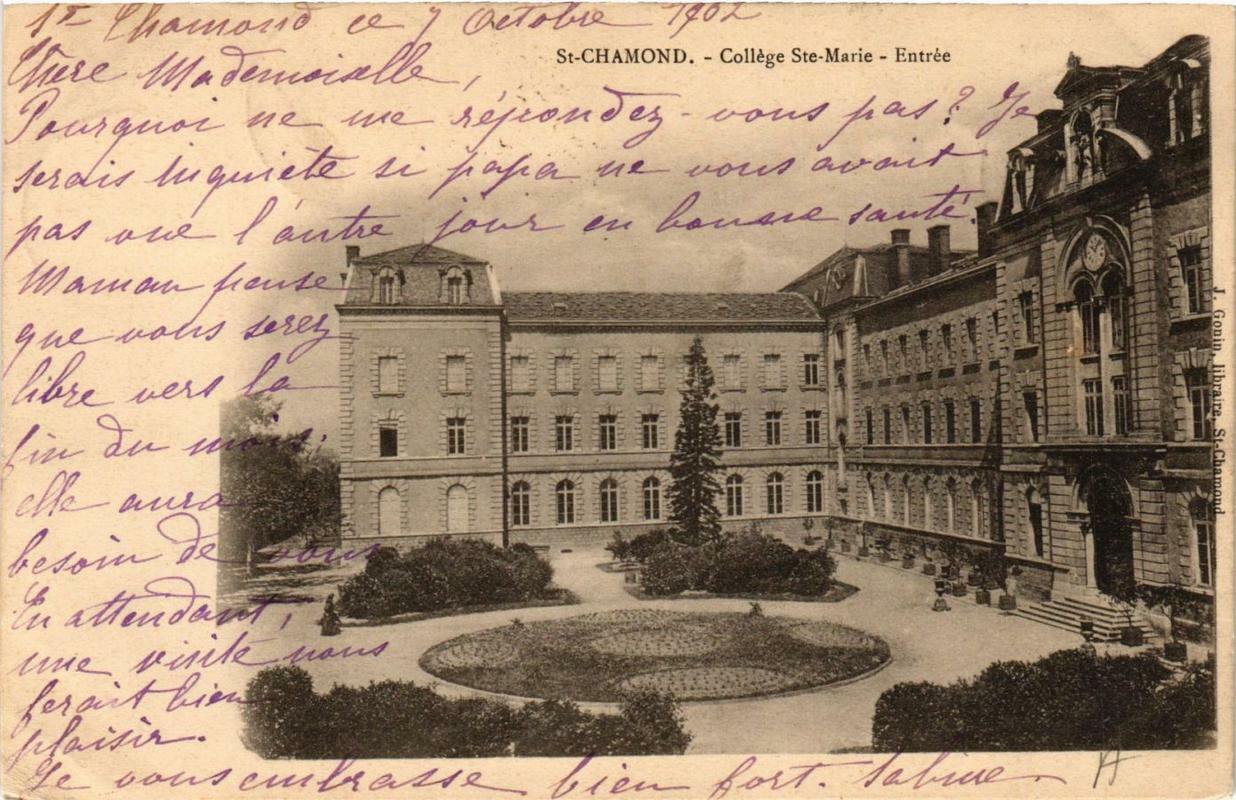 St Chamond ce 7 Octobre 1902
St-CHAMOND. - Collège Ste-Marie - Entrée
Chère Mademoiselle,
Pourquoi ne me répondez-vous pas? Je
serais inquiète si papa ne vous avait
pas vue l'autre jour en bonne santé
Maman pense
que vous serez
libre vers la
fin du mois.
elle aura
besoin de vous
En attendant,
une visite nous
ferait bien
plaisir.
Je vous embrasse bien fort. Sabine.
J. Gonin, libraire, St-Chamond